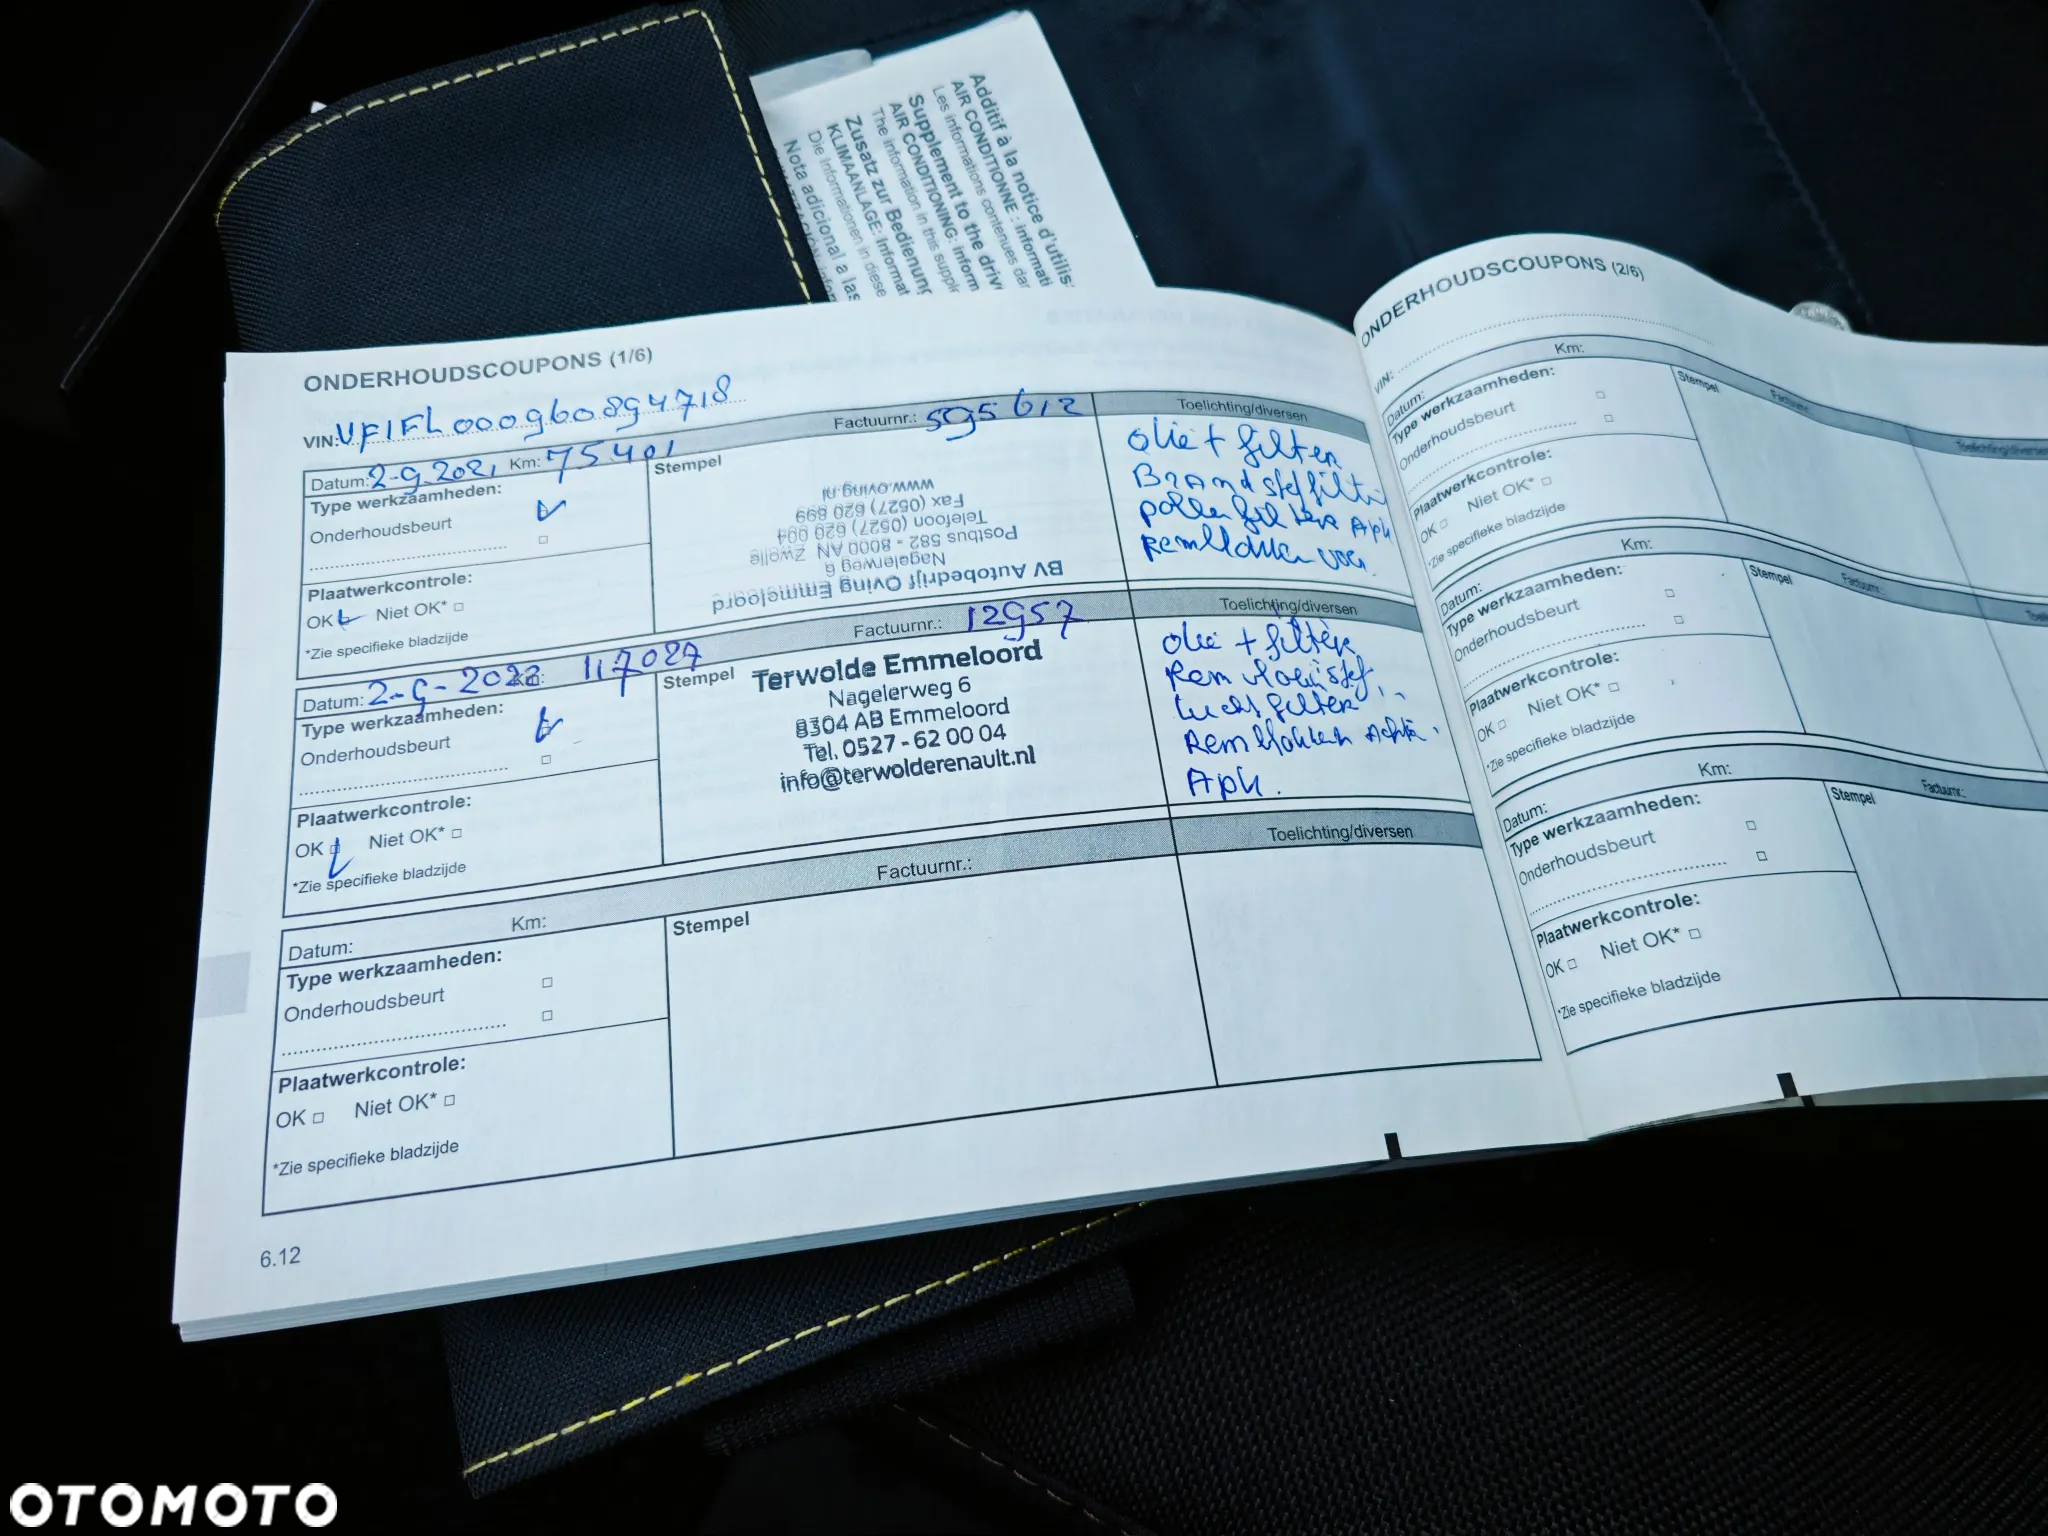 Additif à la notice d'utilis
AIR CONDITIONNE : informati
Les informations contenues dan
Supplement to the drive
AIR CONDITIONING: inform
The information in this supple
Zusatz zur Bedienung
KLIMAANLAGE: Informat
Die Informationen in diese
Nota adicional a las
ONDERHOUDSCOUPONS (1/6)
VIN: VF1FL000960894718
Datum: 2-9-2021 Km: 75401 Factuurnr.: 595612 Toelichting/diversen
Type werkzaamheden:
Onderhoudsbeurt
Plaatwerkcontrole:
OK Niet OK*
*Zie specifieke bladzijde
Stempel
BV Autobedrijf Oving Emmeloord
Nagelerweg 6
Postbus 582 - 8000 AN Zwolle
Telefoon (0527) 620 004
Fax (0527) 620 899
www.oving.nl
Olie + filter
Brandstoffilter
pollenfilter Apk
Remblokken voor
Datum: 2-9-2022 Km: 117027 Factuurnr.: 12957 Toelichting/diversen
Type werkzaamheden:
Onderhoudsbeurt
Plaatwerkcontrole:
OK Niet OK*
*Zie specifieke bladzijde
Stempel
Terwolde Emmeloord
Nagelerweg 6
8304 AB Emmeloord
Tel. 0527 - 62 00 04
info@terwolderenault.nl
Olie + filter
Remvloeistof
Luchtfilter
Remblokken Achter
Apk.
Datum: Km: Factuurnr.: Toelichting/diversen
Type werkzaamheden:
Onderhoudsbeurt
Plaatwerkcontrole:
OK Niet OK*
*Zie specifieke bladzijde
Stempel
6.12
ONDERHOUDSCOUPONS (2/6)
VIN:
Datum: Km: Factuurnr.:
Type werkzaamheden:
Onderhoudsbeurt
Plaatwerkcontrole:
OK Niet OK*
*Zie specifieke bladzijde
Stempel
Datum: Km: Factuurnr.:
Type werkzaamheden:
Onderhoudsbeurt
Plaatwerkcontrole:
OK Niet OK*
*Zie specifieke bladzijde
Stempel
Datum: Km: Factuurnr.:
Type werkzaamheden:
Onderhoudsbeurt
Plaatwerkcontrole:
OK Niet OK*
*Zie specifieke bladzijde
Stempel
OTOMOTO